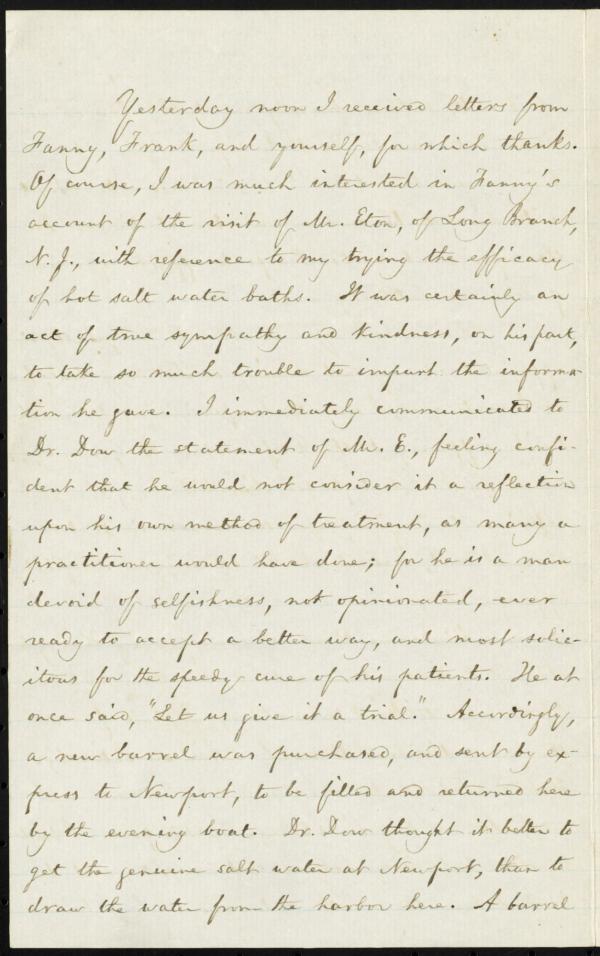 Yesterday noon I received letters from
Fanny, Frank, and yourself, for which thanks.
Of course, I was much interested in Fanny's
account of the visit of Mr. Eton, of Long Branch,
N. J., with reference to my trying the efficacy
of hot salt water baths. It was certainly an
act of true sympathy and kindness, on his part,
to take so much trouble to impart the informa-
tion he gave. I immediately communicated to
Dr. Dow the statement of Mr. E., feeling confi-
dent that he would not consider it a reflection
upon his own method of treatment, as many a
practitioner would have done; for he is a man
devoid of selfishness, not opinionated, ever
ready to accept a better way, and most solic-
itous for the speedy cure of his patients. He at
once said, "Let us give it a trial." Accordingly,
a new barrel was purchased, and sent by ex-
press to Newport, to be filled and returned here
by the evening boat. Dr. Dow thought it better to
get the genuine salt water at Newport, than to
draw the water from the harbor here. A barrel